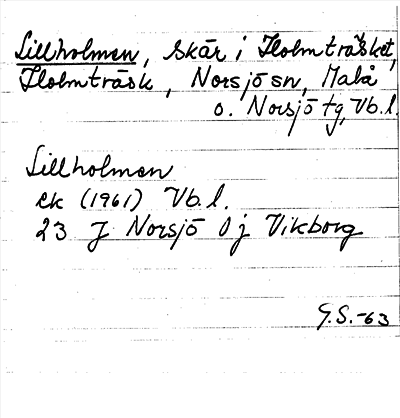 Lillholmen, skär i Holmträsket,
Holmträsk, Norsjö sn, Malå
o. Norsjö tg, Vb.l.
Lillholmen
ek (1961) Vb.l.
23 J Norsjö 0 j Vikborg
G.S.-63